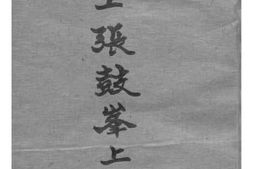 上張鼓峯上